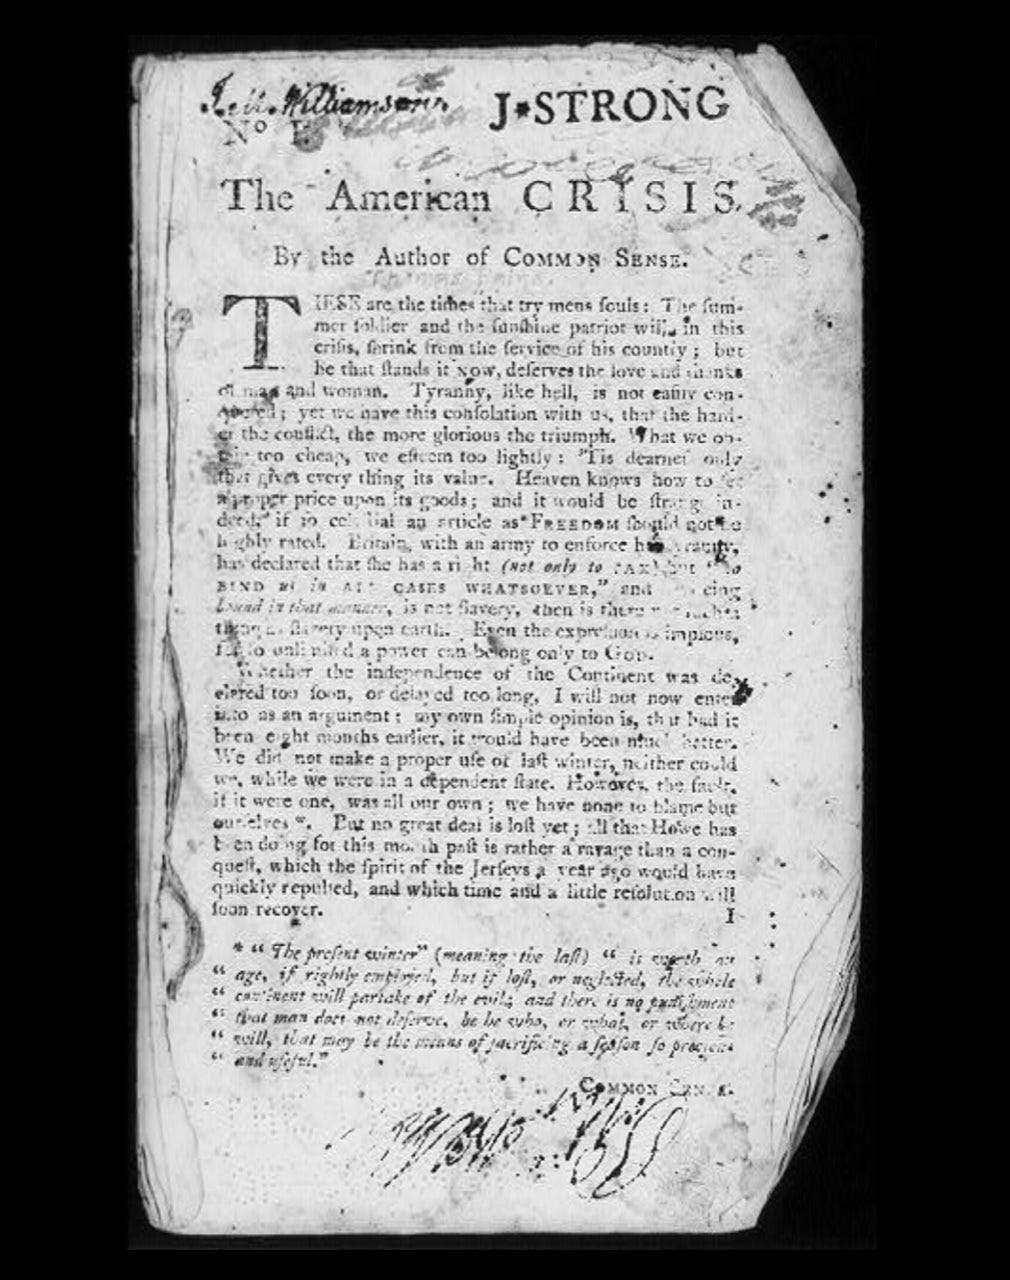 Williamson
J*STRONG
No
The American CRISIS.
By the Author of COMMON SENSE.
Thomas Paine.
THESE are the times that try mens ſouls: The ſum-
mer ſoldier and the ſunſhine patriot will, in this
criſis, ſhrink from the ſervice of his country; but
he that ſtands it NOW, deſerves the love and thanks
of man and woman. Tyranny, like hell, is not eaſily con-
quered; yet we have this conſolation with us, that the hard-
er the conflict, the more glorious the triumph. What we ob-
tain too cheap, we eſteem too lightly: 'Tis dearneſs only
that gives every thing its value. Heaven knows how to ſet
a proper price upon its goods; and it would be ſtrange in-
deed, if ſo celeſtial an article as FREEDOM ſhould not be
highly rated. Britain, with an army to enforce her tyranny,
has declared that ſhe has a right (not only to TAX) but "to
BIND us in ALL CASES WHATSOEVER," and if being
bound in that manner, is not ſlavery, then is there not ſuch a
thing as ſlavery upon earth. Even the expreſſion is impious,
for ſo unlimited a power can belong only to GOD.
Whether the independence of the Continent was de-
clared too ſoon, or delayed too long, I will not now enter
into as an argument; my own ſimple opinion is, that had it
been eight months earlier, it would have been much better.
We did not make a proper uſe of laſt winter, neither could
we, while we were in a dependent ſtate. However, the fault,
if it were one, was all our own; we have none to blame but
ourſelves *. But no great deal is loſt yet; all that Howe has
been doing for this month paſt is rather a ravage than a con-
queſt, which the ſpirit of the Jerſeys a year ago would have
quickly repulſed, and which time and a little reſolution will
ſoon recover.
I
* " The preſent winter" (meaning the laſt) " is worth an
" age, if rightly employed, but if loſt, or neglected, the whole
" continent will partake of the evil; and there is no puniſhment
" that man does not deſerve, be he who, or what, or where he
" will, that may be the means of ſacrificing a ſeaſon ſo precious
" and uſeful."
COMMON SENSE.